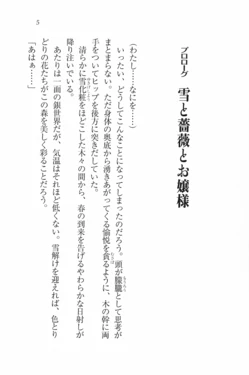 5
プロローグ 雪と薔薇とお嬢様
(わたし……なにを……)
いったい、どうしてこんなことになってしまったのだろう。頭が朦朧として思考が
まとまらない。ただ身体の奥底から湧きあがってくる愉悦を貪るように、木の幹に両
手をついてヒップを後方に突きだしていた。
清らかな雪化粧をほどこした木々の間から、春の到来を告げるやわらかな日射しが
降り注いでいる。
あたりは一面の銀世界だが、気温はそれほど低くない。雪解けを迎えれば、色とり
どりの花たちがこの森を美しく彩ることだろう。
「あはぁ……」